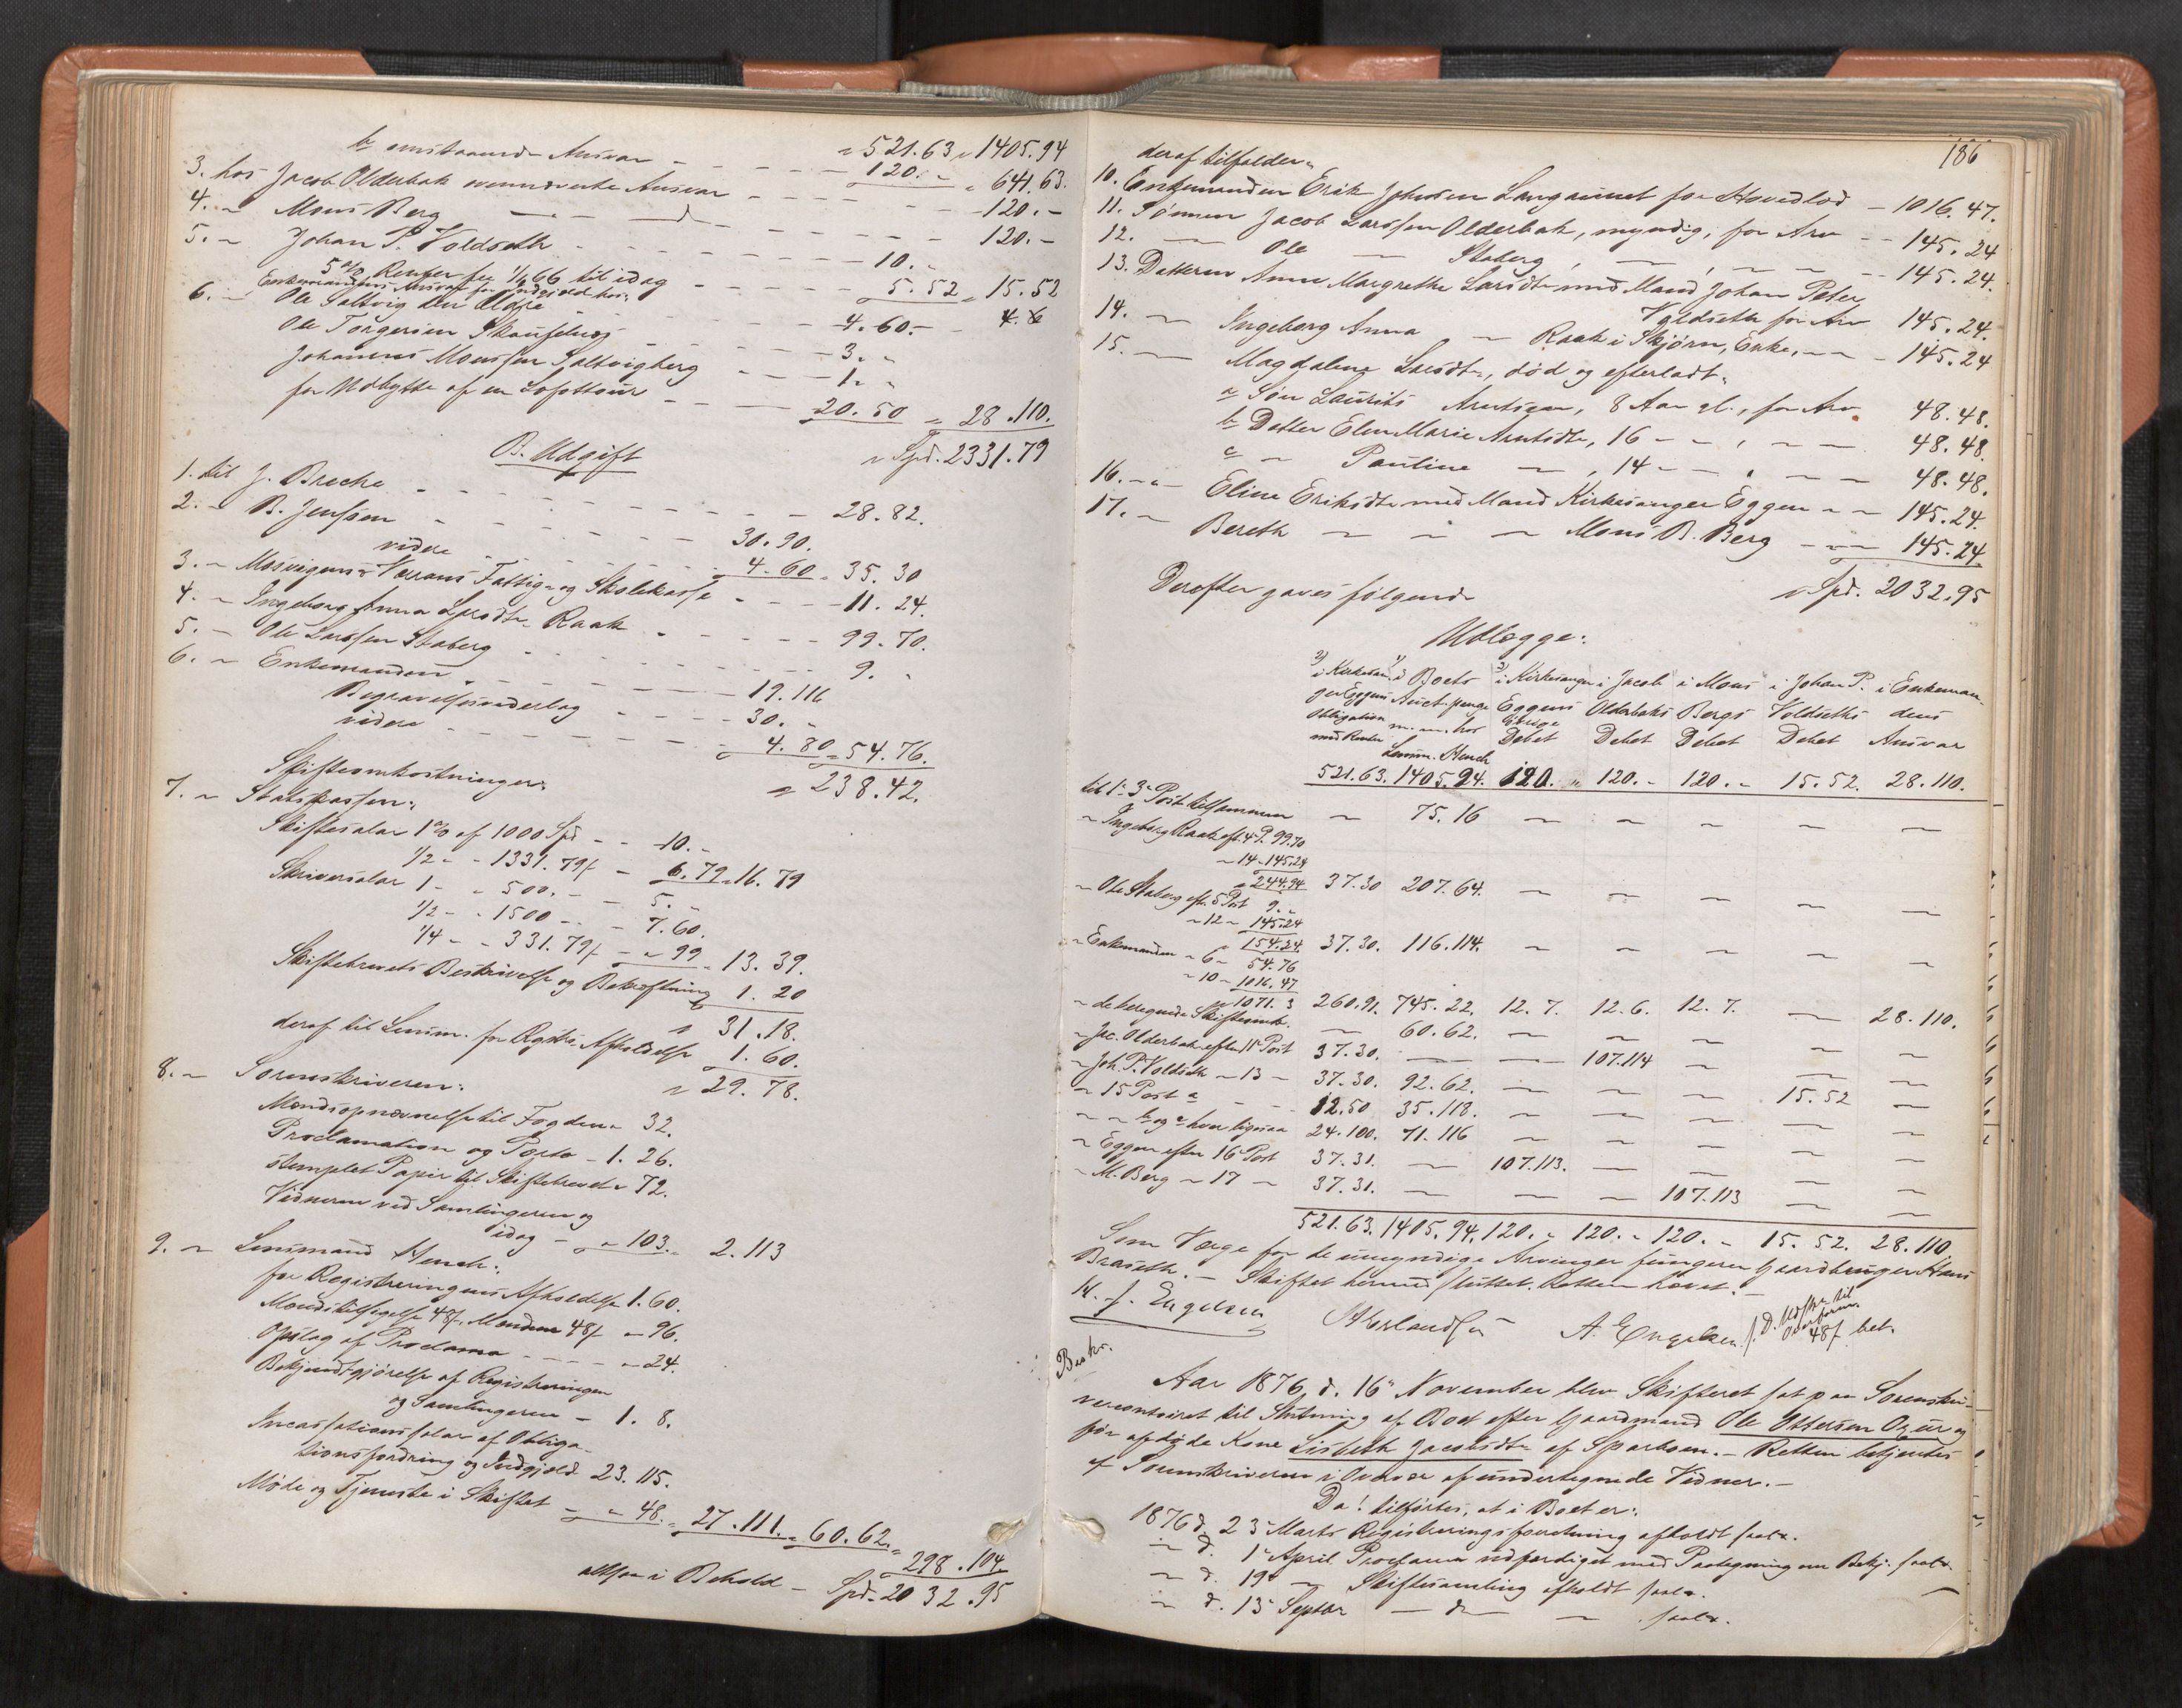 b, Ansvar - - „ 521.63 „ 1405.94
3. hos Jacob Olderbak ovennævnte Ansvar - - 120. „ „ 641.63.
4. „ Mons Berg - d - - 120. -
5. „ Johan P. Voldseth - - 120. -
10. „
5 % Renter fra 1/ 66 til idag - - 5. 52 „ 15.52
6. „ Enkemandens Ansvar for Indgjæld hos:
Ole Saltvig den Ældre - - 4. 60. -
Ole Torgersen - - 3. „
Johannes Monssen Saltvigberg - - 1. „
for Udbytte af en Lofottour - - 20. 50 „ 28. 110.
„ Spd. 2331.79
B. Udgift
1. til J. Brecke - - 28. 82.
2. „ B. Jenssen - - 30. 90.
videre - - 4. 60 „ 35. 30
3. „ Mosvigens & Værrans Fattig- og Skolekasse - - 11. 24.
4. „ Ingeborg Anna Larsdtr. Raak - - 99. 70.
5. „ Ole Larssen Staberg - - 9. „
6. „ Enkemanden - - 19. 116
Begravelsesvederlag - - 30. „
videre - - 4. 80 „ 54. 76.
„ 238. 42.
Skifteomkostninger:
7. „ Statskassen:
Skiftesalar 1% af 1000 Spd - - 10. „
1/2 „ „ 1331. 79 f - 6. 79 „ 16. 79
Skriversalar 1 „ „ 500. - - 5. „
1/2 „ „ 1500 - - 7. 60.
1/4 „ „ 331. 79 f - „ 99 „ 13. 39.
Skiftebrevets Beskrivelse og Bekræftning 1. 20
„ 31. 18.
deraf til Lensm. for Registr. Afholdelse 1. 60.
„ 29. 78.
8. „ Sorenskriveren:
Mændsopnævnelse til Fogden „ 32.
Proclamation og Porto - 1. 26.
stemplet Papir til Skiftebrevet „ 72.
Vidnerne ved Samlingerne og
idag - „ 103. „ 2. 113
9. „ Lensmand Henck:
for Registreringens Afholdelse 1. 60.
Mændstilsigelse 48 f, Mændene 48 f „ 96.
Opslag af Proclama - - „ 24.
Bekjendtgjørelse af Registreringen
og Samlingerne - 1. 8.
Incassationssalar af Obliga-
tionsfordring og Indgjæld 23. 115.
Møde og Tjeneste i Skiftet - „ 48. „ 27. 111. „ 60. 62. „
298. 104.
altsaa i Behold - Spd. 2032. 95
186
deraf tilfalder:
10. Enkemanden Erik Johnsen Langaunet for Hovedlod - 1016. 47.
11. Sønnen Jacob Larssen Olderbak, myndig, for Arv - - 145. 24
12. - Ole - Staberg, -, - - - 145. 24.
13. Datteren Anne Margrethe Larsdtr. med Mand Johan Peter
Voldseth for Arv 145. 24.
14. „ Ingeborg Anna - Raak i Skjørn, Enke, - - - 145. 24
15. - Magdalene Larsdtr., død og efterladt:
a Søn Laurits Arntsen, 8 Aar gl., for Arv 48. 48.
b Datter Elen Marie Arntsdtr., 16 - -, - - 48. 48.
c - Pauline -, 14 - -, - - 48. 48.
16. - Eline Eriksdtr. med Mand Kirkesanger Eggen - - 145. 24.
17. - Bereth - - - Mons B. Berg - - 145. 24
„ Spd. 2032. 95
Derefter gaves følgende
Udlægge:
2) i Kirkesan- 1) i Boets 3) i Kirkesanger i Jacob i Mons i Johan P. i Enkeman-
ger Eggens Auct. penge Eggens Olderbaks Bergs Voldseths dens
Obligation m. m. hos øvrige Debet Debet Debet Ansvar
med Renter Lensm. Henck Debet
521.63. 1405.94. 120. „ 120. - 120. - 15. 52. 28. 110.
til 1 - 3 Post tilsammen - 75. 16 - - - - -
„ Ingeborg Raak eft. 4 P. 99.70
„ 14 - 145.24
„ 244.94 37.30 207. 64. - - - - -
„ Ole Staberg eft. 5 Post 9. „
„ 12 „ 145.24
154.24. 37. 30. 116. 114. - - - - -
„ Enkemanden „ 6 „ 54.76
„ 10 „ 1016. 47
„ 1071. 3 260.91. 745. 22. 12. 7. 12. 6. 12. 7. - 28. 110.
„ de beregnede Skifteomk. - 60. 62. - - - - -
„ Jac. Olderbak efter 11 Post 37. 30. - - 107.114 - - -
„ Joh. P. Voldseth „ 13 „ 37. 30. 92. 62. - - - 15. 52 -
„ 15 Post a - - 12. 50 35. 118. - - - - -
„ „ b og c hver ligesaa 24. 100. 71. 116 - - - - -
„ Eggen efter 16 Post 37. 31. - 107. 113. - - - -
„ M. Berg „ 17 „ 37. 31. - - - 107. 113 - -
521. 63. 1405. 94. 120. „ 120. „ 120. - 15. 52. 28. 110.
Som Værge for de umyndige Arvinger fungerer Gaardbruger Hans
Braseth. - Skiftet hermed sluttet. Retten hævet. -
M. J. Engelsen A. Engelsen. f. D. Udskr. til
48 f bet.
Beskr.
Aar 1876, d. 16 November blev Skifteret sat paa Sorenskri-
vercontoiret til Slutning af Boet efter Gaardmand Ole Ottersen Opeur og
før afdøde Kone Lisbeth Jacobsdtr. af Sparboen. - Retten betjentes
af Sorenskriveren i Overvær af undertegnede Vidner. -
Da! tilførtes, at i Boet er:
1876 d. 23 Marts Registreringsforretning afholdt saal.
- d. 1 April Proclama udfærdiget med Paategning om Bekj. saal.
- d. 19 - Skiftesamling afholdt saal.
- d. 13 Septbr - d - - saal.